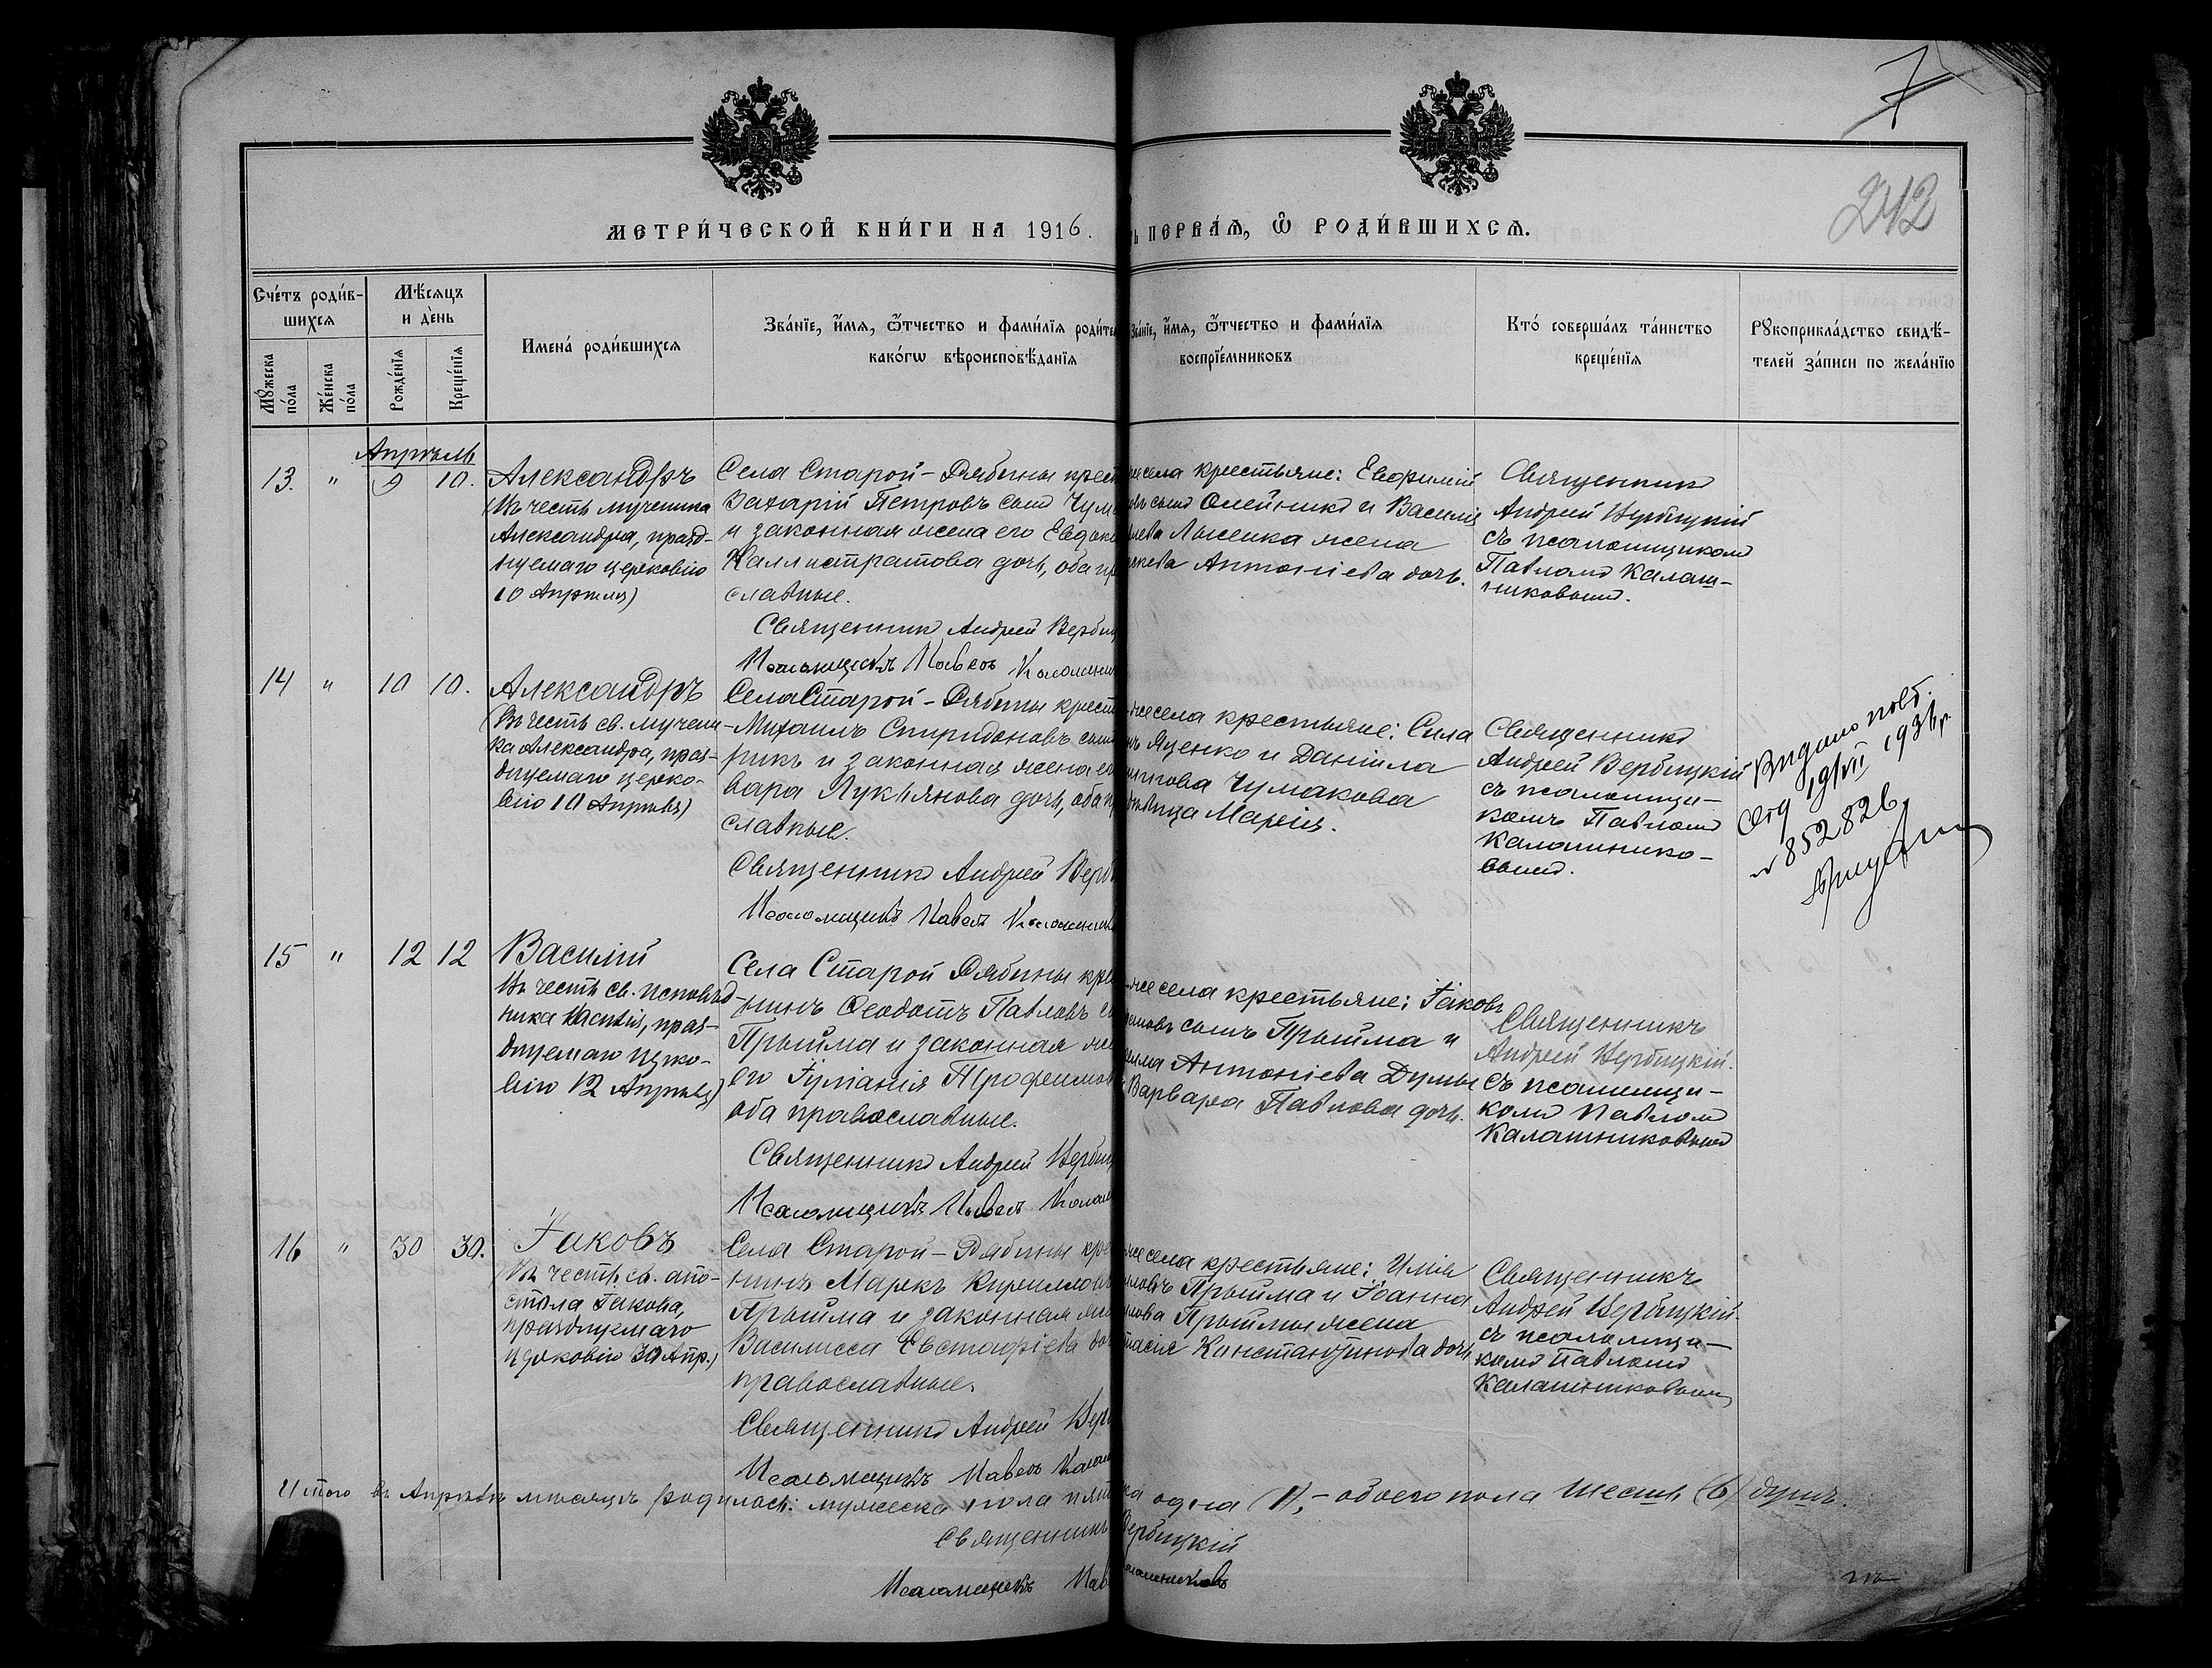 7
242
МЕТРИ́ЧЕСКОЙ КНИ́ГИ НА 1916.
ПЕРВА́Ѧ, Ѿ РОДИ́ВШИХСѦ.
Сче́тъ роди́в-
шихсѧ
Му́жеска по́ла
Же́нска по́ла
Мѣ́сѧцъ
и де́нь
Рожде́нїѧ
Креще́нїѧ
Имена́ роди́вшихсѧ
Зва́нїе, и́мѧ, ѻ́тчество и фами́лїѧ роди́те
како́гѡ вѣроисповѣ́данїѧ
Зва́нїе, и́мѧ, ѻ́тчество и фами́лїѧ
воспрїе́мниковъ
Кто́ соверша́лъ та́инство
креще́нїѧ
Рꙋкоприкла́дство свидѣ́-
телей за́писи по жела́нїю
Апрѣль
13. " 9 10.
Александръ
(Въ честь мученика
Александра, празд-
нуемаго церковію
10 Апрѣля)
Села Старой-Рябины крест
Захарій Петровъ сынъ Чум
и законная жена его Евдок
Каллистратова дочь, оба пр
славные.
Священникъ Андрей Верби
Псаломщикъ Павелъ Калашни
села крестьяне: Евфимій
овъ сынъ Олейникъ и Василія
ева Лысенка жена
Антоніева дочь.
Священникъ
Андрей Вербицкій
съ псаломщикомъ
Павломъ Калаш-
никовымъ.
14 " 10 10.
Александръ
(Въ честь св. мучени-
ка Александра, праз-
днуемаго церко-
вію 10 Апрѣля)
Села Старой-Рябины крест
Михаилъ Спиридоновъ сынъ
рикъ и законная жена ег
вара Лукьянова дочь, оба п
славные.
Священникъ Андрей Верб
Псаломщикъ Павелъ Калашник
же села крестьяне: Сила
Яценко и Даніила
Чумакова
дѣвица Марія.
Священникъ
Андрей Вербицкій
съ псаломщи-
комъ Павломъ
Калашнико-
вымъ.
Видано повт.
19/VII 1931 р
№ 852826
15 " 12 12
Василій
Въ честь св. исповѣд-
ника Василія, праз-
днуемаго церко-
вію 12 Апрѣля)
Села Старой Рябины кре
нинъ Ѳеодотъ Павловъ с
Прыйма и законная же
его Іуліанія Трофимов
оба православные.
Священникъ Андрей Верби
Псаломщикъ Павелъ Калаш
же села крестьяне: Іаковъ
новъ сынъ Прыйма и
Антоніева Думы
Варвара Павлова дочь.
Священникъ
Андрей Вербицкій.
съ псаломщи-
комъ Павломъ
Калашниковымъ
16 " 30 30.
Іаковъ
(Въ честь св. апо-
стола Іакова,
празднуемаго
церковію 30 Апр.)
Села Старой-Рябины кре
нинъ Маркъ Кирилловъ
Прыйма и законная же
Василисса Евстафіева до
православные.
Священникъ Андрей Вер
Псаломщикъ Павелъ Калаш
же села крестьяне: Илія
ловъ Прыйма и Іоанна
нова Прыймы жена
тасія Константинова дочь
Священникъ
Андрей Вербицкій.
съ псаломщи-
комъ Павломъ
Калашниковымъ
Итого въ Апрѣлѣ мѣсяцѣ родилось: мужеска пола пять
одна (1),- обоего пола шесть (6) душъ.
Священникъ Вербицкій
Псаломщикъ Пав лашниковъ